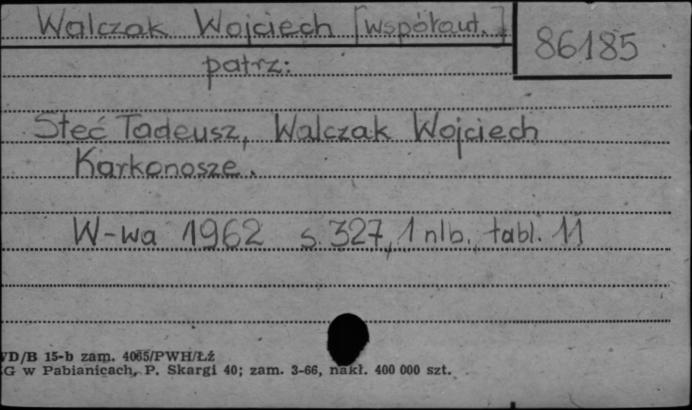 Walczak Wojciech [współaut.]
86185
patrz:
Steć Tadeusz, Walczak Wojciech
Karkonosze.
W-wa 1962 s. 327, 1 nlb., tabl. 11
VD/B 15-b zam. 4065/PWH/Łź
G w Pabianicach, P. Skargi 40; zam. 3-66, nakł. 400 000 szt.